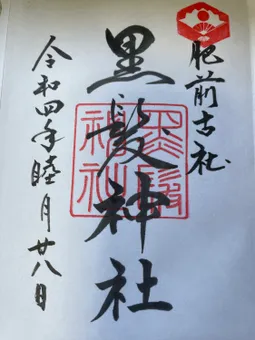 肥前古社
黒髪神社
令和四年睦月廿八日
黒髪
神社